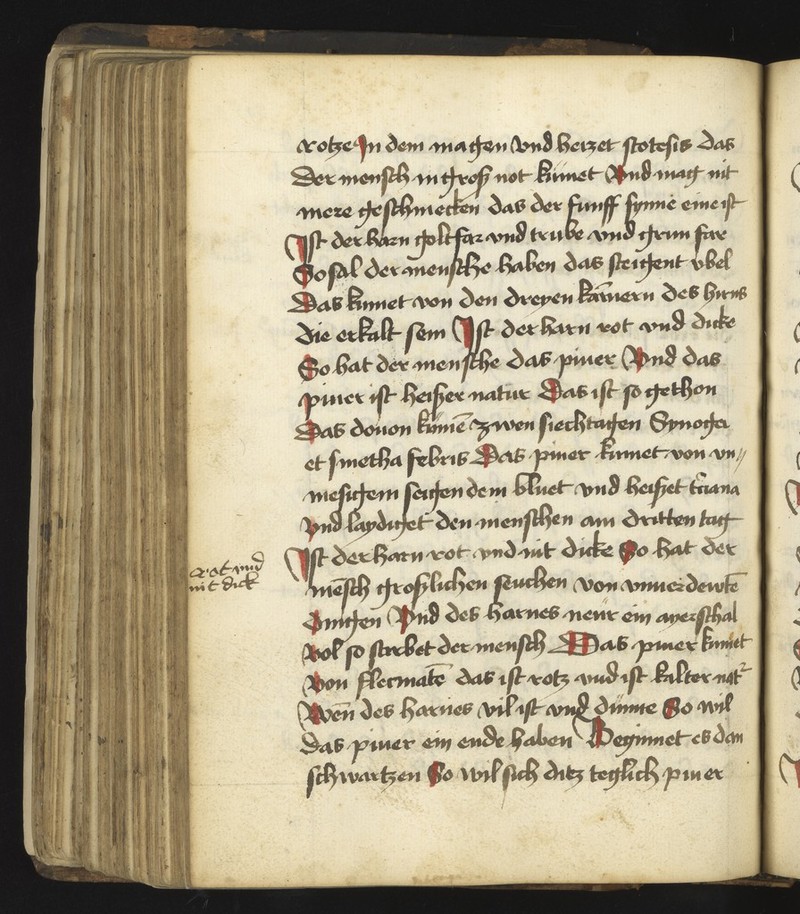 rotze In dem magen Vnd heizet stotesis das
der mensch in groß not kumet Vnd mag nit
mere geschmecken das der funff synne eine ist
Ist der harn goltfar vnd trube vnd grun far
So sal der mensche haben das steigent vbel
Das kumet von den dreyen kamern des hirns
die erkalt sein Ist der harn rot vnd dicke
So hat der mensche das piuer Vnd das
piuer ist heißer natur Das ist so gethon
Das douon kumen zwen siechtagen Synoger
et smetha febris Das piuer kumet von vn//
mesigem seigen dem bluet vnd heißet tciana
vnd laydiget den menschen am dritten tag
Ist der harn rot vnd nit dicke So hat der
rot vnd
nit dick
mesch großlichen seuchen von vnuerdewte
dingen Vnd des harnes neur ein ayerschal
vol so stirbet der mensch Das piuer kumet
von flecmate das ist rotz vnd ist kalter nat
Wen des harnes vil ist vnd dunne So wil
das piuer ein ende haben Beginnet es dan
schwartzen So wil sich ditz teglich piuer